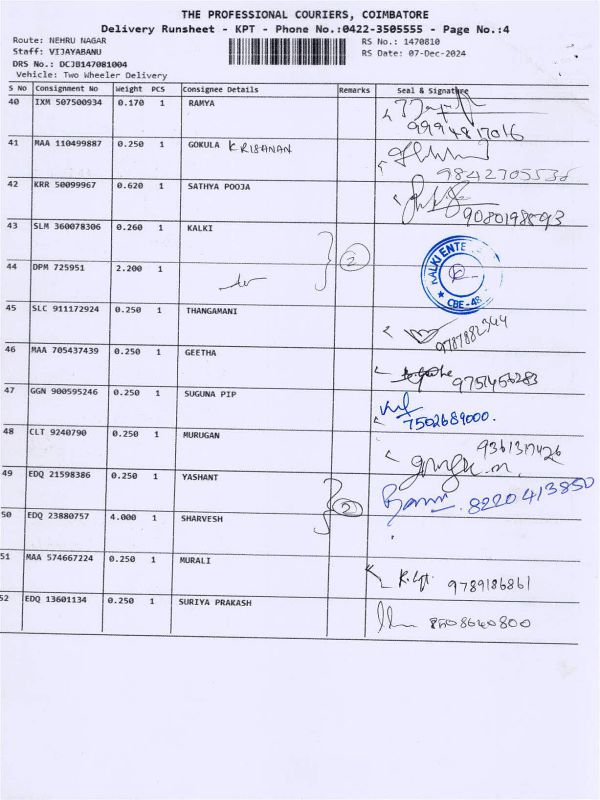 THE PROFESSIONAL COURIERS, COIMBATORE
Delivery Runsheet - KPT - Phone No.:0422-3505555 - Page No.:4
Route: NEHRU NAGAR RS No.: 1470810
Staff: VIJAYABANU RS Date: 07-Dec-2024
DRS No.: DCJB147081004
Vehicle: Two Wheeler Delivery
S No Consignment No Weight PCS Consignee Details Remarks Seal & Signature
40 IXM 507500934 0.170 1 RAMYA
9994817016
41 MAA 110499887 0.250 1 GOKULA KRISHNAN
42 KRR 50099967 0.620 1 SATHYA POOJA
9080198593
43 SLM 360078306 0.260 1 KALKI
2
KALKI ENTE
CBE-48
44 DPM 725951 2.200 1
45 SLC 911172924 0.250 1 THANGAMANI
9787882344
46 MAA 705437439 0.250 1 GEETHA
9751456283
47 GGN 900595246 0.250 1 SUGUNA PIP
7502689000.
48 CLT 9240790 0.250 1 MURUGAN
9361317426
49 EDQ 21598386 0.250 1 YASHANT
8220413850
2
50 EDQ 23880757 4.000 1 SHARVESH
51 MAA 574667224 0.250 1 MURALI
9789186861
52 EDQ 13601134 0.250 1 SURIYA PRAKASH
8508640800